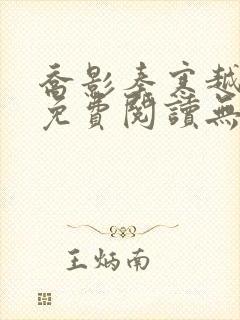 喬影秦寒越
免費閱讀無
王炳南